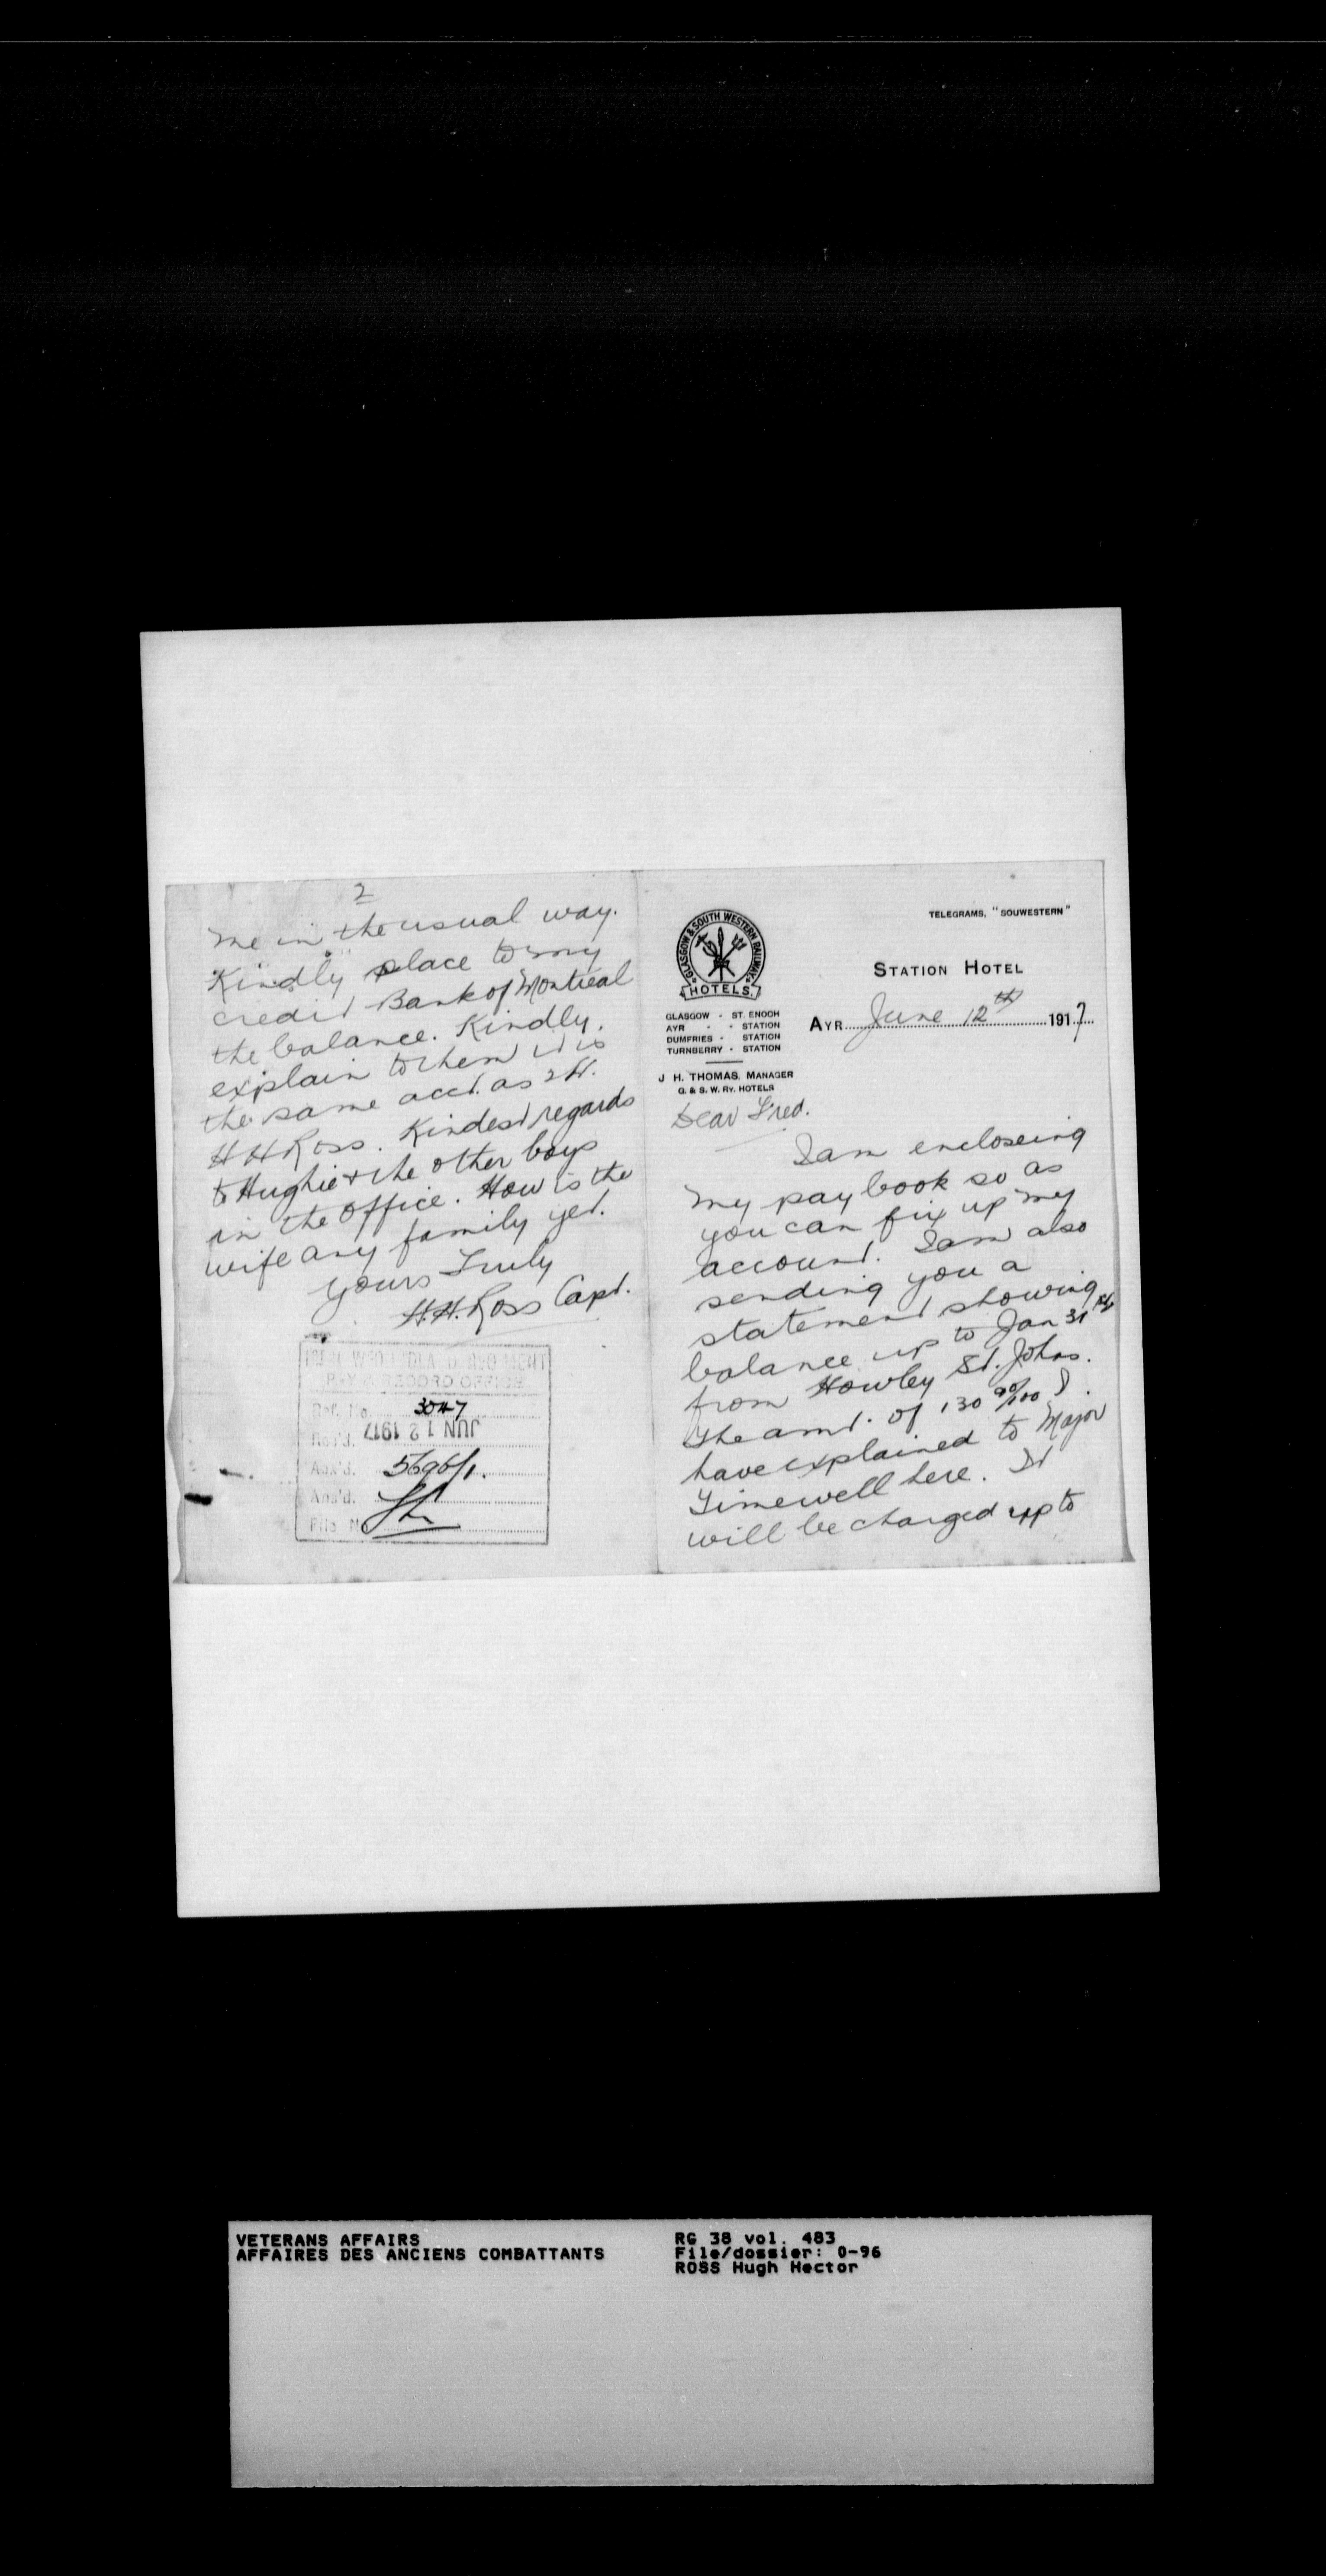 TELEGRAMS, "SOUWESTERN"
GLASGOW & SOUTH WESTERN RAILWAY
HOTELS.
STATION HOTEL
GLASGOW - ST. ENOCH
AYR - - STATION
DUMFRIES - STATION
TURNBERRY - STATION
J H. THOMAS, MANAGER
G. & S. W. RY. HOTELS
AYR June 12th 1917
Dear Fred.
I am encloseing
my pay book so as
you can fix up my
account. I am also
sending you a
statement showing
balance up to Jan 31st
from Howley St. Johns.
The amt. of 130 90/100 I
have explained to Major
Timewell here. It
will be charged up to
2
me in the usual way.
Kindly place to my
credit Bank of Montreal
the balance. Kindly
explain to them it is
the same acct. as Lt.
H H Ross. Kindest regards
to Hughie & the other boys
in the office. How is the
wife any family yet.
Yours Truly
H.H. Ross Capt.
PAY & RECORD OFFICE
Ref. No. 3047
JUN 12 1917
5696/1.
Ans'd.
File No
VETERANS AFFAIRS
AFFAIRES DES ANCIENS COMBATTANTS
RG 38 vol. 483
File/dossier: 0-96
ROSS Hugh Hector